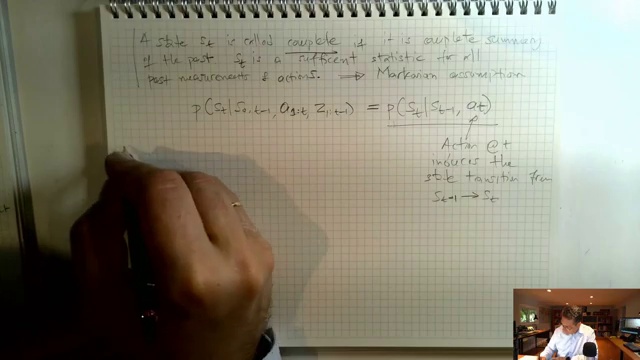 A state St is called complete if it is complete summary
if the past St is a sufficient statistic for all
past measurements & actions. ⟹ Markovian assumption
p(St|S0:t-1, a1:t, z1:t-1) = p(St|St-1, at)
Action @ t
induces the
state transition from
St-1 → St